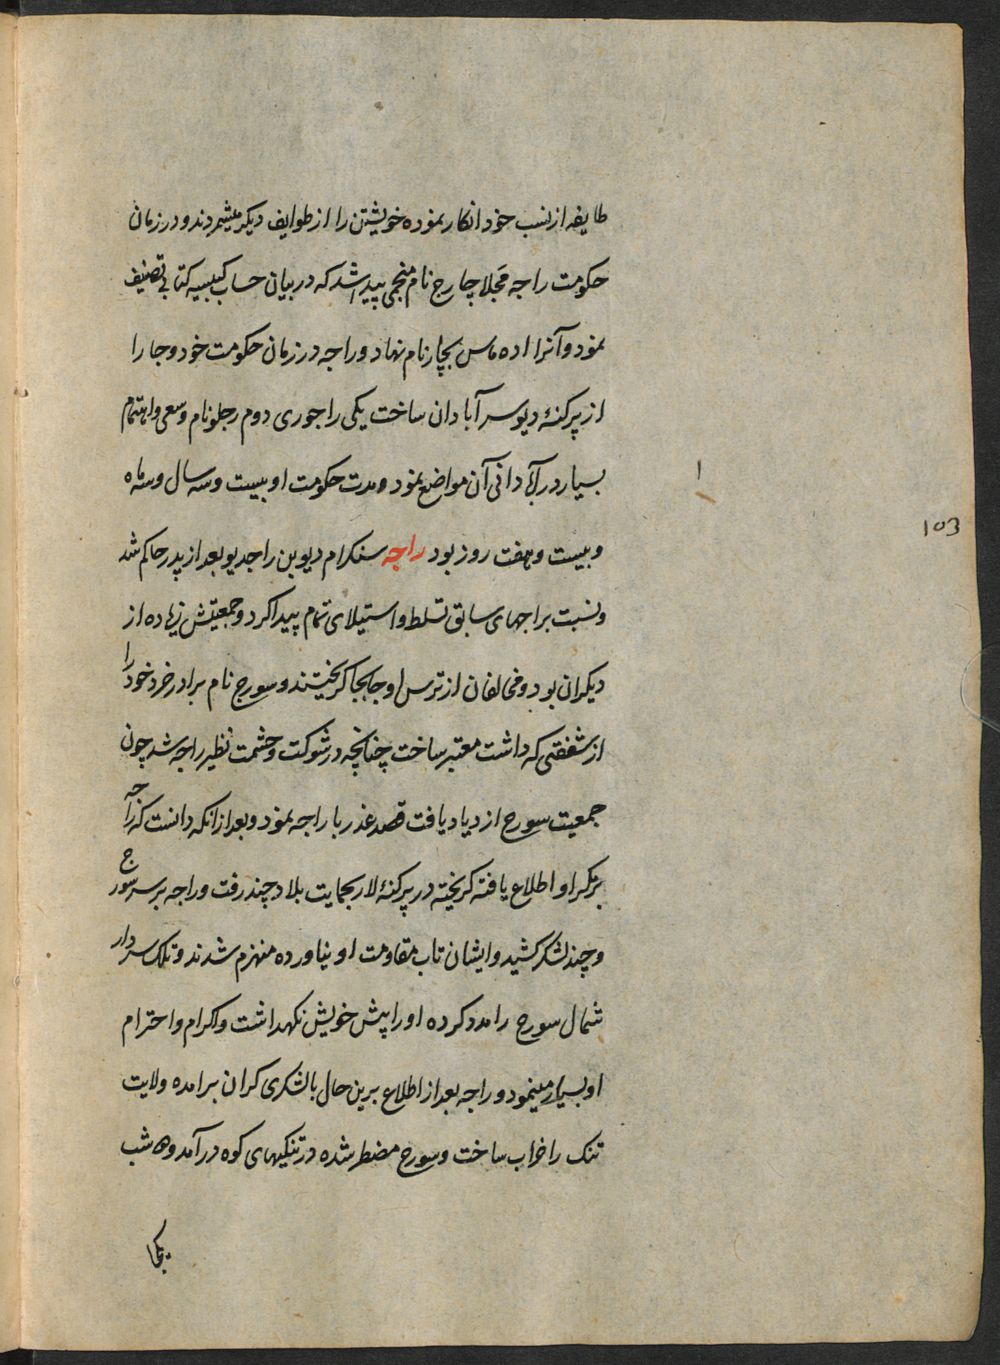 طایفه از نسب خود انکار نموده خویشتن را از طوایف دیکر میشمردند و در زمان
حکومت راجه مجلاچارج نام منجمی پیدا شد که در بیان حساب کبیسه کتابی تصنیف
نمود و آنرا اده ماس بچار نام نهاد و راجه در زمان حکومت خود دو جا را
از پرکنهٔ دیوسر آبادان ساخت یکی راجوری دوم رجلو نام و سعی و اهتمام
بسیار در آبادانی آن مواضع نمود و مدت حکومت او بیست و سه سال و سه ماه
و بیست و هفت روز بود راجه سنکرام دیو بن راجدیو بعد از پدر حاکم شد
و نسبت براجهای سابق تسلط و استیلای تمام پیدا کرد و جمعیتش زیاده از
دیکران بود و مخالفان از ترس او جابجا کریختند و سورج نام برادر خرد خود را
از شفقتی که داشت معتبر ساخت چنانچه در شوکت و حشمت نظیر راجه شد چون
جمعیت سورج ازدیاد یافت قصد غدر با راجه نمود و بعد ازانکه دانست که راجه
بر مکر او اطلاع یافته کریخته در پرکنهٔ لار بحمایت بلاد چند رفت و راجه بر سر سورج
و چند لشکر کشید و ایشان تاب مقاومت او نیاورده منهزم شدند و تلک سردار
شمال سورج را مدد کرده او را پیش خویش نکهداشت و اکرام و احترام
او بسیار مینمود و راجه بعد از اطلاع برین حال با لشکری کران برامده ولایت
تنک را خراب ساخت و سورج مضطر شده در تنکیهای کوه در آمد و هر شب
۱
103